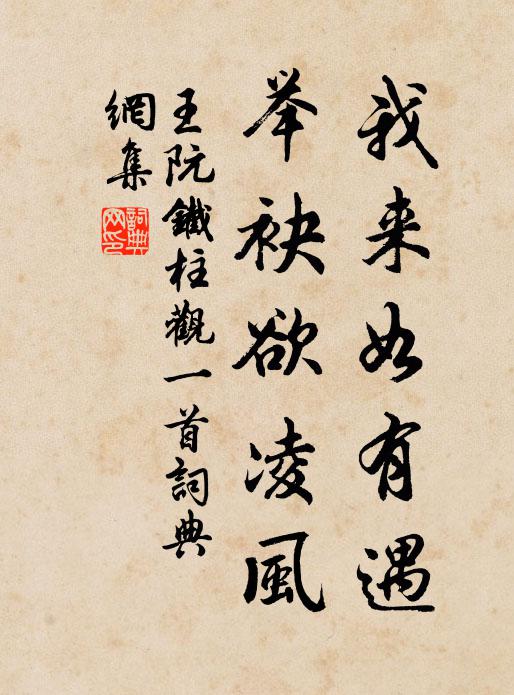 我来如有遇
举袂欲凌風
王阮鐵柱觀一首詞典
網集
詞典
网印